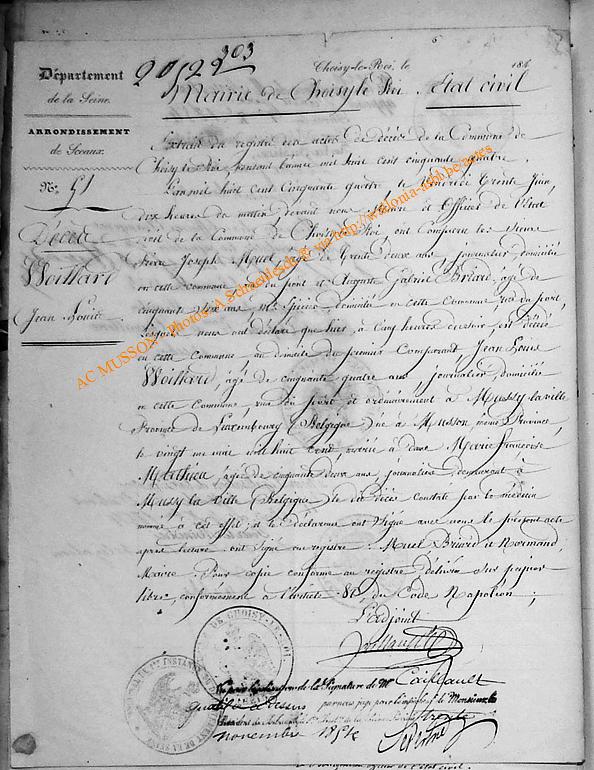 303
20/22
Département
de la Seine.
ARRONDISSEMENT
de Sceaux.
N.º 51
Décès
Woillard
Jean Louis
Choisy-le-Roi, le 184
Mairie de Choisy le Roi État civil
Extrait du registre des actes de décès de la Commune de
Choisy le Roi pendant l'année mil huit cent cinquante quatre.
L'an mil huit cent Cinquante quatre, le Trente Juin,
dix heures du matin, devant nous Maire et Officier de l'Etat
civil de la Commune de Choisy le Roi ont Comparu les Sieurs
Joseph Muel, âgé de Trente deux ans, journalier, domicilié
en cette commune rue du pont et Auguste Gabriel Briard, âgé de
cinquante ans, domicilié en cette Commune rue du pont,
lesquels nous ont déclaré que hier, à Cinq heures du soir, est décédé
en cette Commune, au domicile du premier Comparant Jean Louis
Woillard, âgé de cinquante quatre ans, journalier, domicilié
en cette Commune, rue du pont et ordinairement à Mussy la ville
Province de Luxembourg (Belgique) né à Musson même Province,
le vingt mai mil huit cent, marié à Dame Marie françoise
Mathieu, âgée de cinquante deux ans, journalière, demeurant à
Mussy la Ville (Belgique) le dit décès Constaté par le médecin
nommé à cet effet; et les déclarans ont Signé avec nous le présent acte
après lecture. ont Signé au registre: Muel, Briard et Normand,
Maire. Pour copie conforme au registre délivrée sur papier
libre, conformément à l'article 80, du Code Napoléon;
L'adjoint
DE CHOISY-LE-ROI
Vu pour légalisation de la Signature de Mr
par nous juge pour l'empêchement de Monsieur le
novembre 1854
AC MUSSON - Photos: A Schmetlesdeck via http://wallonia-asbl.be/actes